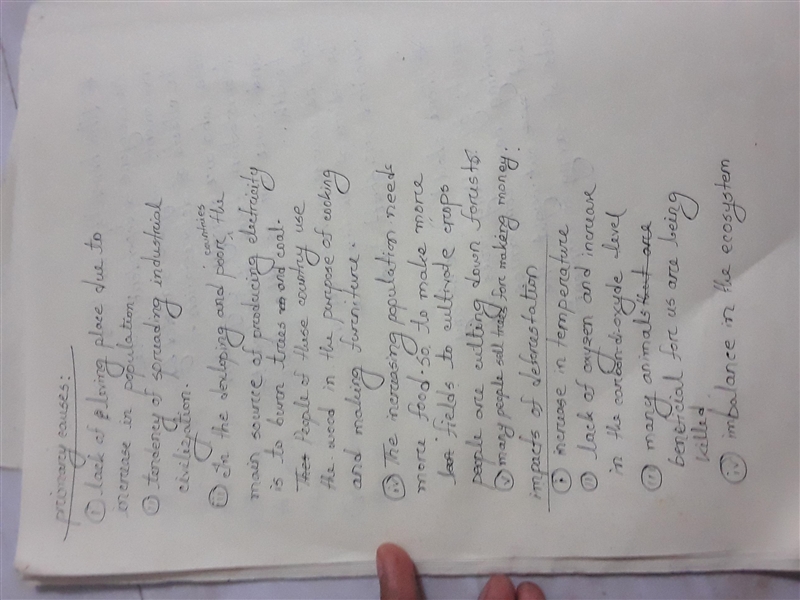 primary causes:
(i) lack of living place due to
increase in population.
(ii) tendency of spreading industrial
civilization.
(iii) In the devloping and poor countries the
main source of producing electricity
is to burn trees and coal.
People of these country use
the wood in the purpose of cooking
and making furniture.
(iv) The increasing population needs
more food. So, to make more
fields to cultivate crops
people are cutting down forusts.
(v) many people sell trees for making money.
impacts of deforestation:
(i) increase in temperature
(ii) lack of oxygen and increase
in the carbon-di-oxyde level
(iii) many animals that are
benificial for us are being
killed
(iv) imbalance in the ecosystem